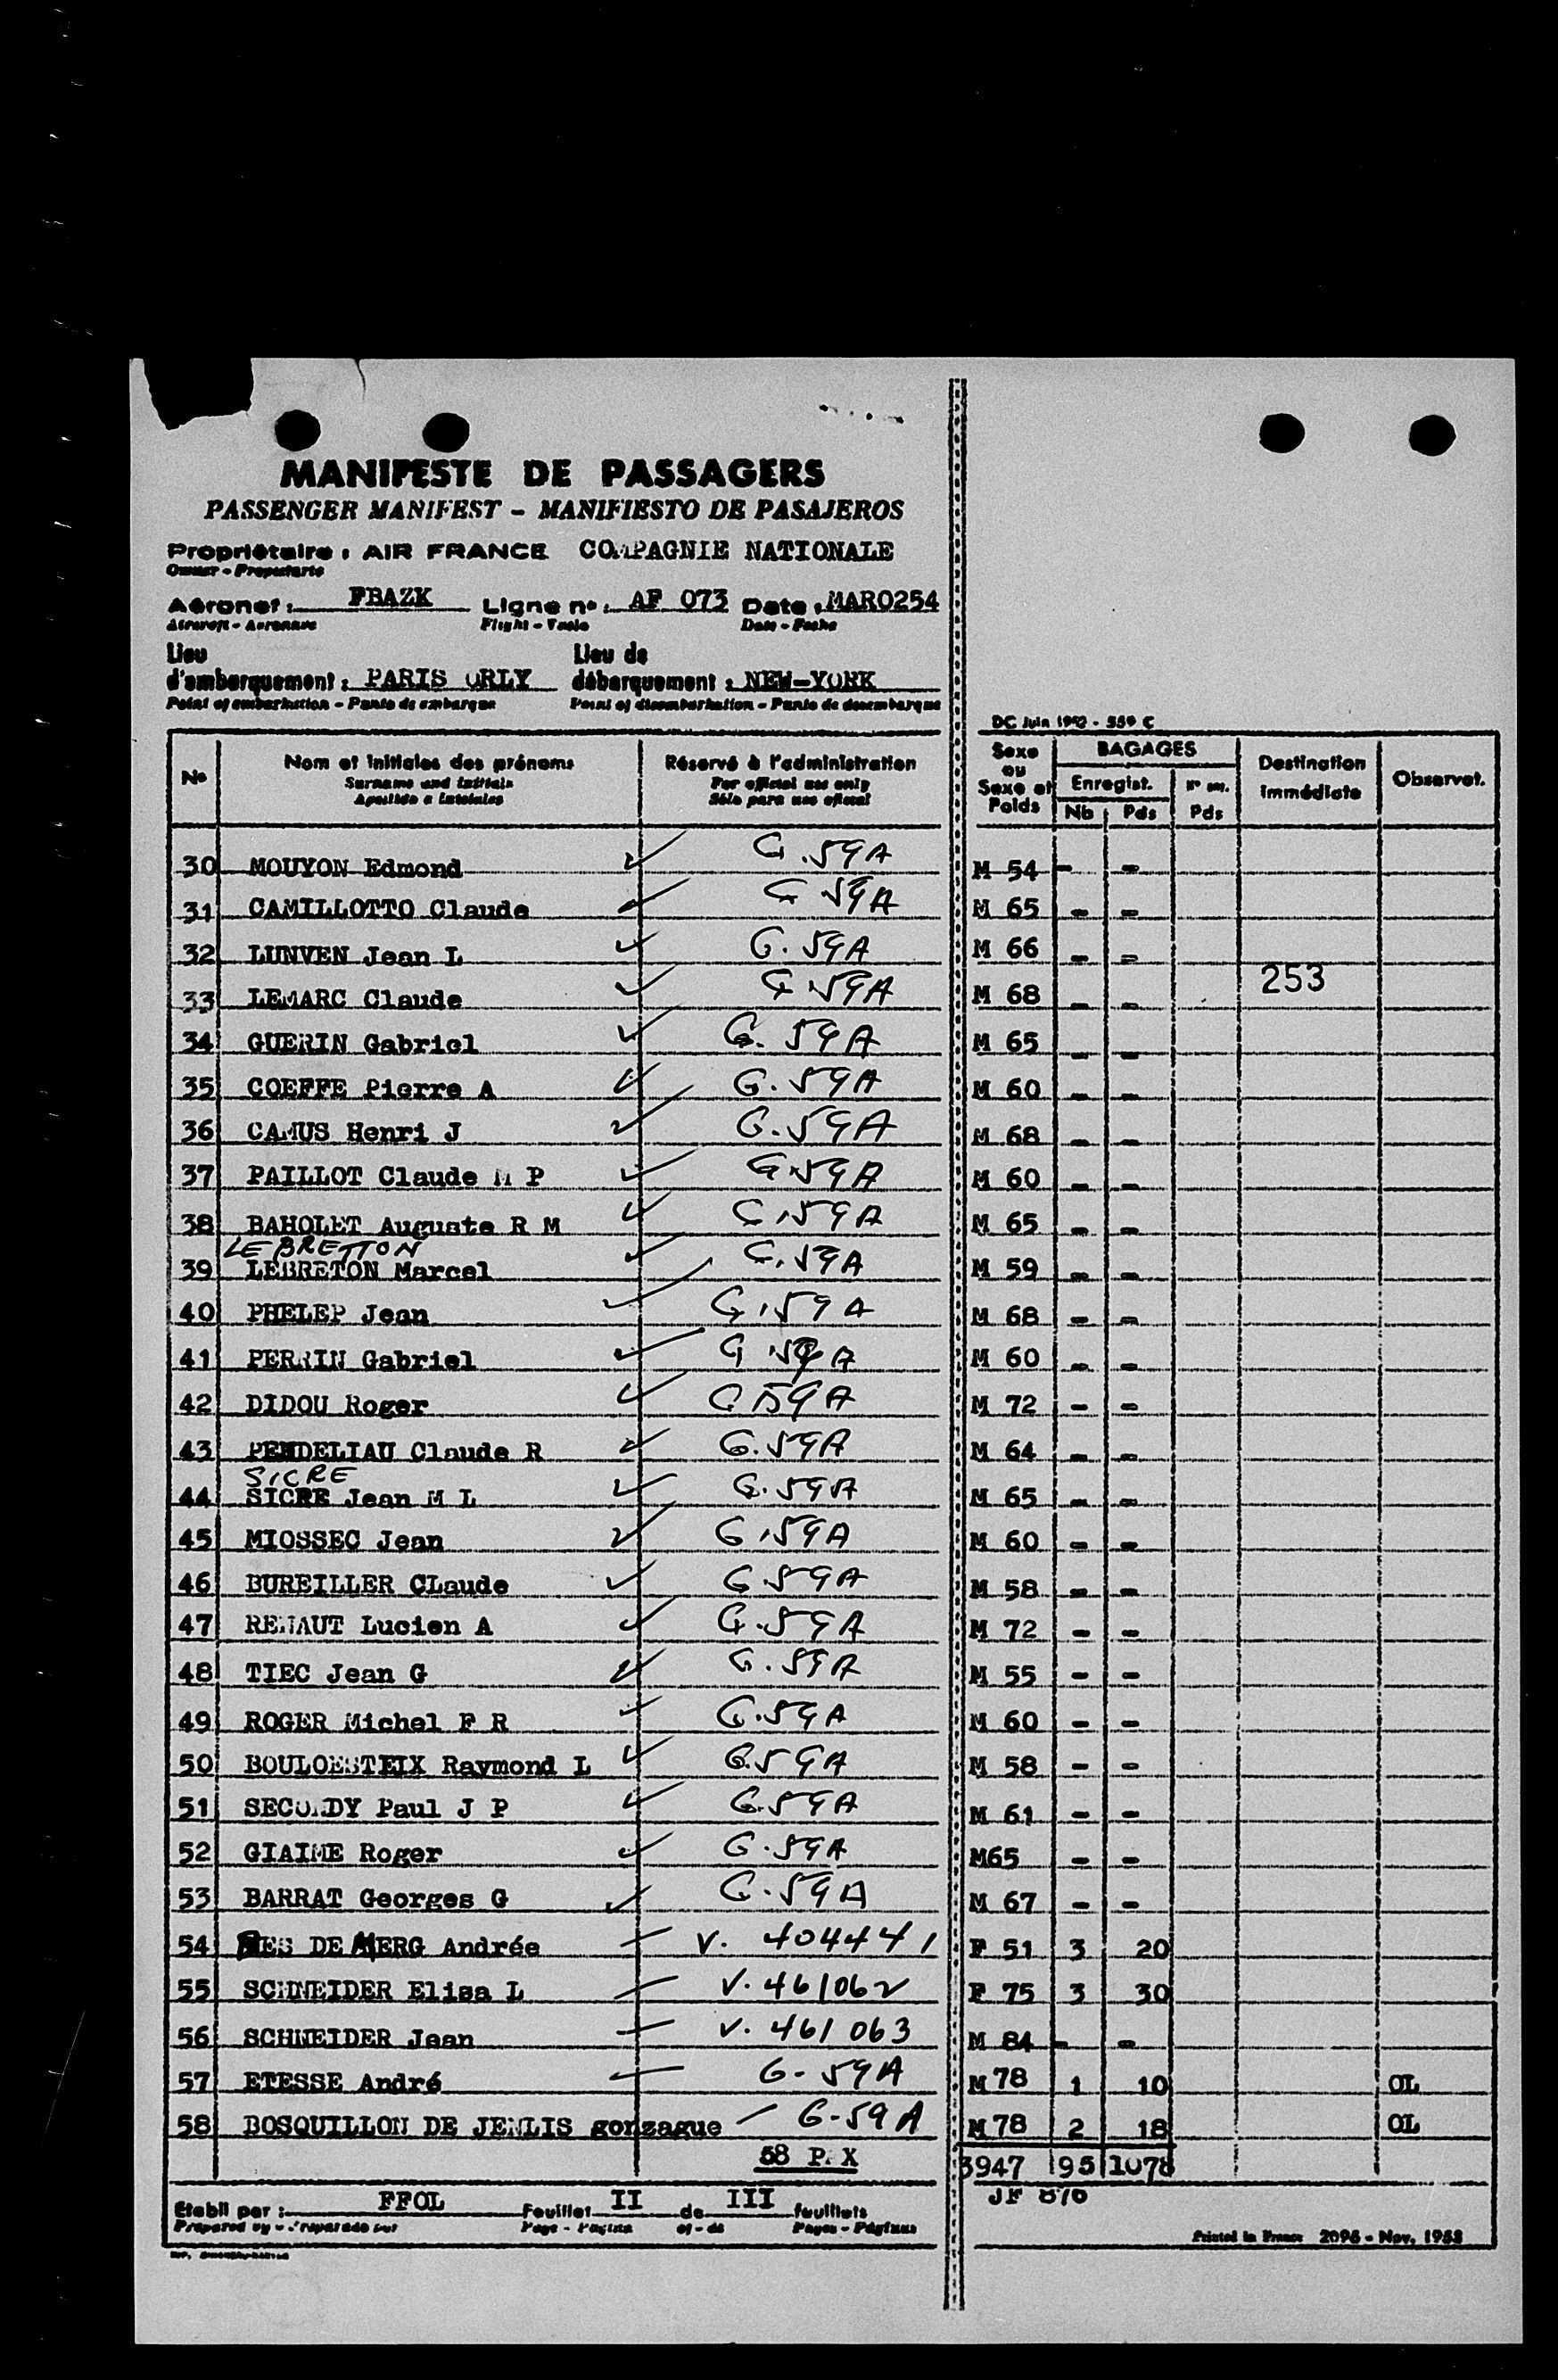 MANIFESTE DE PASSAGERS
PASSENGER MANIFEST - MANIFIESTO DE PASAJEROS
Propriétaire : AIR FRANCE COMPAGNIE NATIONALE
Owner - Propietario
Aéronef : FBAZK Ligne n° : AF 073 Date : MAR0254
Aircraft - Aeronave Flight - Vuelo Date - Fecha
Lieu d'embarquement : PARIS ORLY Lieu de débarquement : NEW-YORK
Point of embarkation - Punto de embarque Point of disembarkation - Punto de desembarque
DC Juin 1952 - 559 C
N° Nom et initiales des prénoms Réservé à l'administration Sexe ou Sexe et Poids BAGAGES Destination immédiate Observat.
Surname and initials For official use only Enregist. Nb Pds Pds
Apellido e iniciales Sólo para uso oficial
30 MOUYON Edmond ✓ G.59A M 54 - -
31 CAMILLOTTO Claude ✓ G 59A M 65 - -
32 LUNVEN Jean L ✓ G.59A M 66 - -
33 LEMARC Claude ✓ G 59A M 68 - - 253
34 GUERIN Gabriel ✓ G.59A M 65 - -
35 COEFFE Pierre A ✓ G.59A M 60 - -
36 CAMUS Henri J ✓ G.59A M 68 - -
37 PAILLOT Claude M P ✓ G.59A M 60 - -
38 BAHOLET Auguste R M ✓ G.59A M 65 - -
LE BRETTON
39 LEBRETON Marcel ✓ G.59A M 59 - -
40 PHELEP Jean ✓ G.59A M 68 - -
41 PERRIN Gabriel ✓ G.59A M 60 - -
42 DIDOU Roger ✓ G59A M 72 - -
43 PENDELIAU Claude R ✓ G.59A M 64 - -
SICRE
44 SICRE Jean M L ✓ G.59A M 65 - -
45 MIOSSEC Jean ✓ G.59A M 60 - -
46 BUREILLER CLaude ✓ G 59A M 58 - -
47 RENAUT Lucien A ✓ G.59A M 72 - -
48 TIEC Jean G ✓ G.59A M 55 - -
49 ROGER Michel F R ✓ G.59A M 60 - -
50 BOULOESTEIX Raymond L ✓ G.59A M 58 - -
51 Paul J P ✓ G.59A M 61 - -
52 GIAIME Roger ✓ G.59A M65 - -
53 BARRAT Georges G ✓ G.59A M 67 - -
54 DE Andrée - V. 404441 F 51 3 20
55 SCHNEIDER Elisa L - V. 461062 F 75 3 30
56 SCHNEIDER Jean - V. 461 063 M 84 - -
57 ETESSE André - G-59A M 78 1 10 OL
58 BOSQUILLON DE JENLIS gonzague - G-59A M 78 2 18 OL
58 P.X 3947 95 1078
JF 870
Etabli par : FFOL Feuillet II de III feuillets
Prepared by - Preparado por Page - Página of - de Pages - Páginas
Printed in France 2096 - Nov. 1953